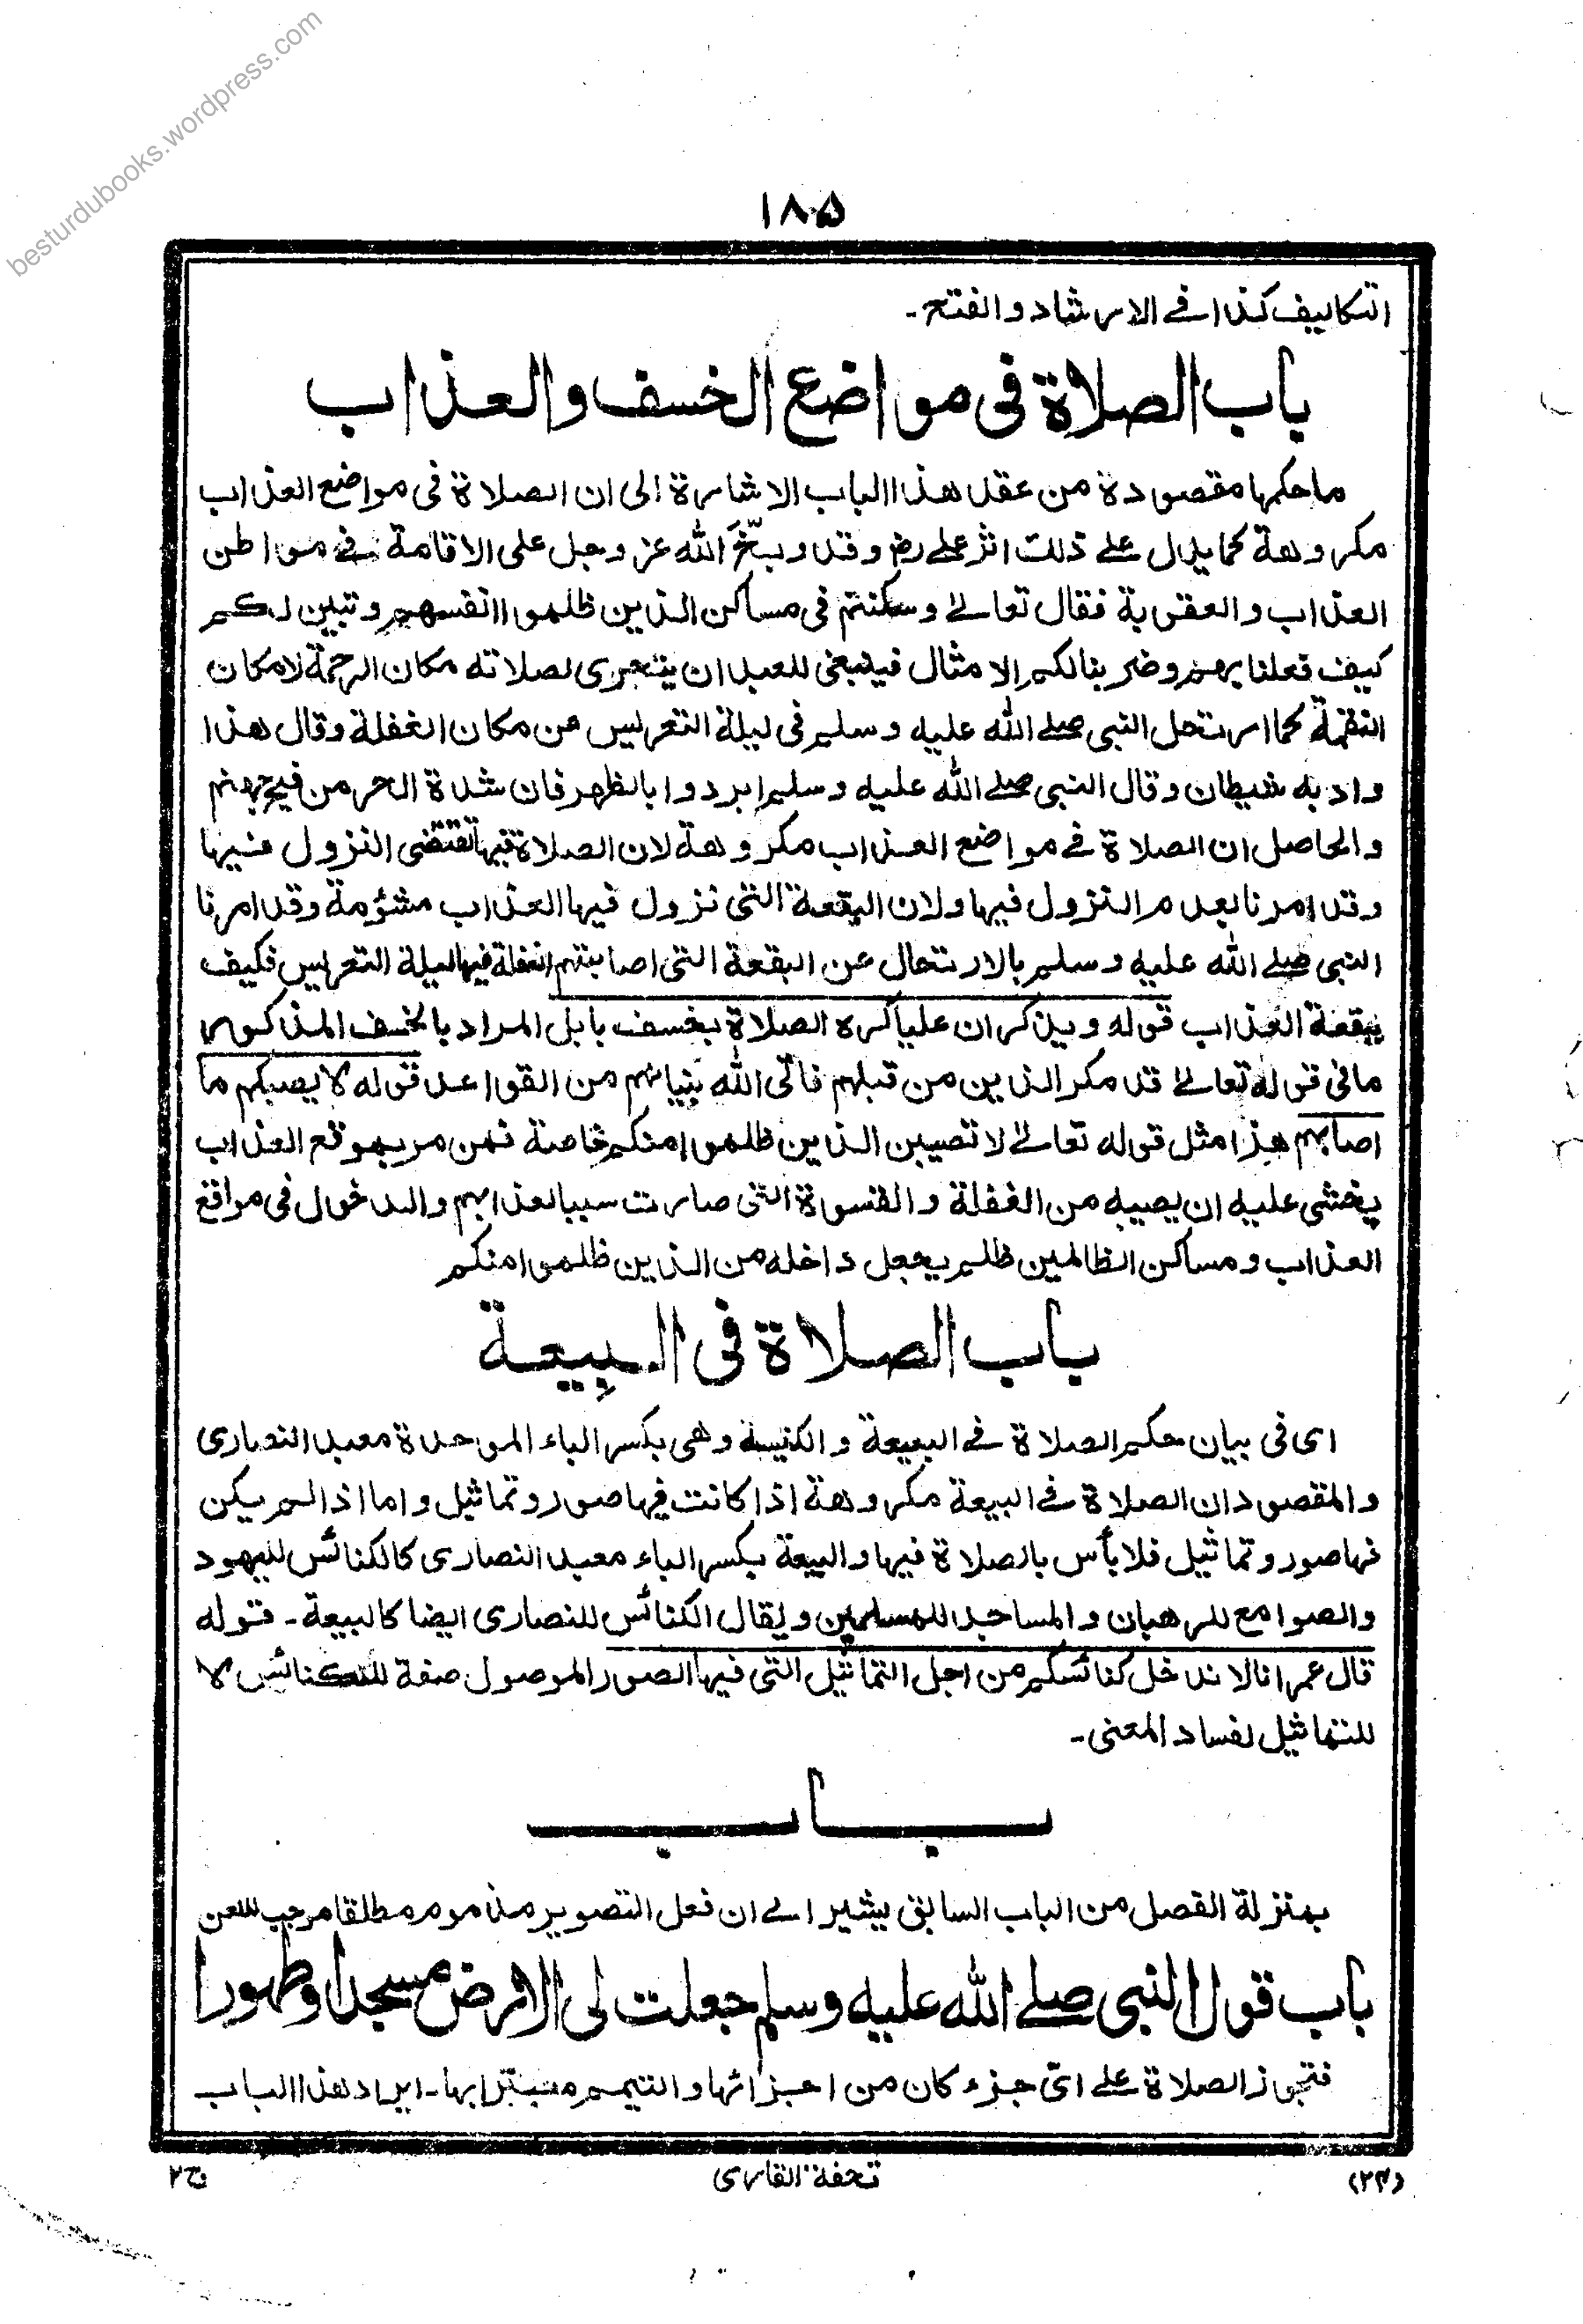 besturdubooks.wordpress.com
١٨٥
التكاليف كذا في الارشاد والفتح۔
باب الصلاة فى مواضع الخسف والعذاب
ما حكمها مقصودة من عقد هذا الباب الاشارة الى ان الصلاة فى مواضع العذاب
مكروهة كما يدل على ذلك اثر على رض وقد وبخ الله عز وجل على الاقامة في مواطن
العذاب والعقوبة فقال تعالى وسكنتم فى مساكن الذين ظلموا انفسهم وتبين لكم
كيف فعلنا بهم وضربنا لكم الامثال فينبغى للعبد ان يتحرى لصلاته مكان الرحمة لا مكان
النقمة كما ارتحل النبى صلى الله عليه وسلم فى ليلة التعريس عن مكان الغفلة وقال هذا
واد به شيطان وقال النبى صلى الله عليه وسلم ابردوا بالظهر فان شدة الحر من فيح جهنم
والحاصل ان الصلاة في مواضع العذاب مكروهة لان الصلاة فيها تقتضى النزول فيها
وقد امرنا بعدم النزول فيها ولان البقعة التى نزول فيها العذاب مشؤمة وقد امرنا
النبى صلى الله عليه وسلم بالارتحال عن البقعة التى اصابتهم الغفلة فيها ليلة التعريس فكيف
ببقعة العذاب قوله ويذكر ان عليا كره الصلاة بخسف بابل المراد بالخسف المذكور
ما فى قوله تعالى قد مكر الذين من قبلهم فاتى الله بنيانهم من القواعد قوله لا يصبكم ما
اصابهم هذا مثل قوله تعالى لا تصيبن الذين ظلموا منكم خاصة فمن مر بموقع العذاب
يخشى عليه ان يصيبه من الغفلة والقسوة التى صارت سببا لعذابهم والدخول فى مواقع
العذاب ومساكن الظالمين ظلم يجعل داخله من الذين ظلموا منكم
باب الصلاة فى البِيعة
اى فى بيان حكم الصلاة في البيعة والكنيسة وهى بكسر الباء الموحدة معبد النصارى
والمقصود ان الصلاة في البيعة مكروهة اذا كانت فيها صور وتماثيل واما اذا لم يكن
فها صور وتماثيل فلا بأس بالصلاة فيها والبيعة بكسر الباء معبد النصارى كالكنائس لليهود
والصوامع للرهبان والمساجد للمسلمين ويقال الكنائس للنصارى ايضا كالبيعة۔ قوله
قال عمر انا لا ندخل كنائسكم من اجل التماثيل التى فيها الصور الموصول صفة للكنائس لا
للتماثيل لفساد المعنى۔
بــاب
بمنزلة الفصل من الباب السابق يشير الى ان فعل التصوير مذموم مطلقا موجب للعن
باب قول النبى صلى الله عليه وسلم جعلت لى الارض مسجدا وطهورا
فتجوز الصلاة على اى جزء كان من اجزائها والتيمم بترابها۔ ايراد هذا الباب
(٢٤)
تحفة القارى
ج٢